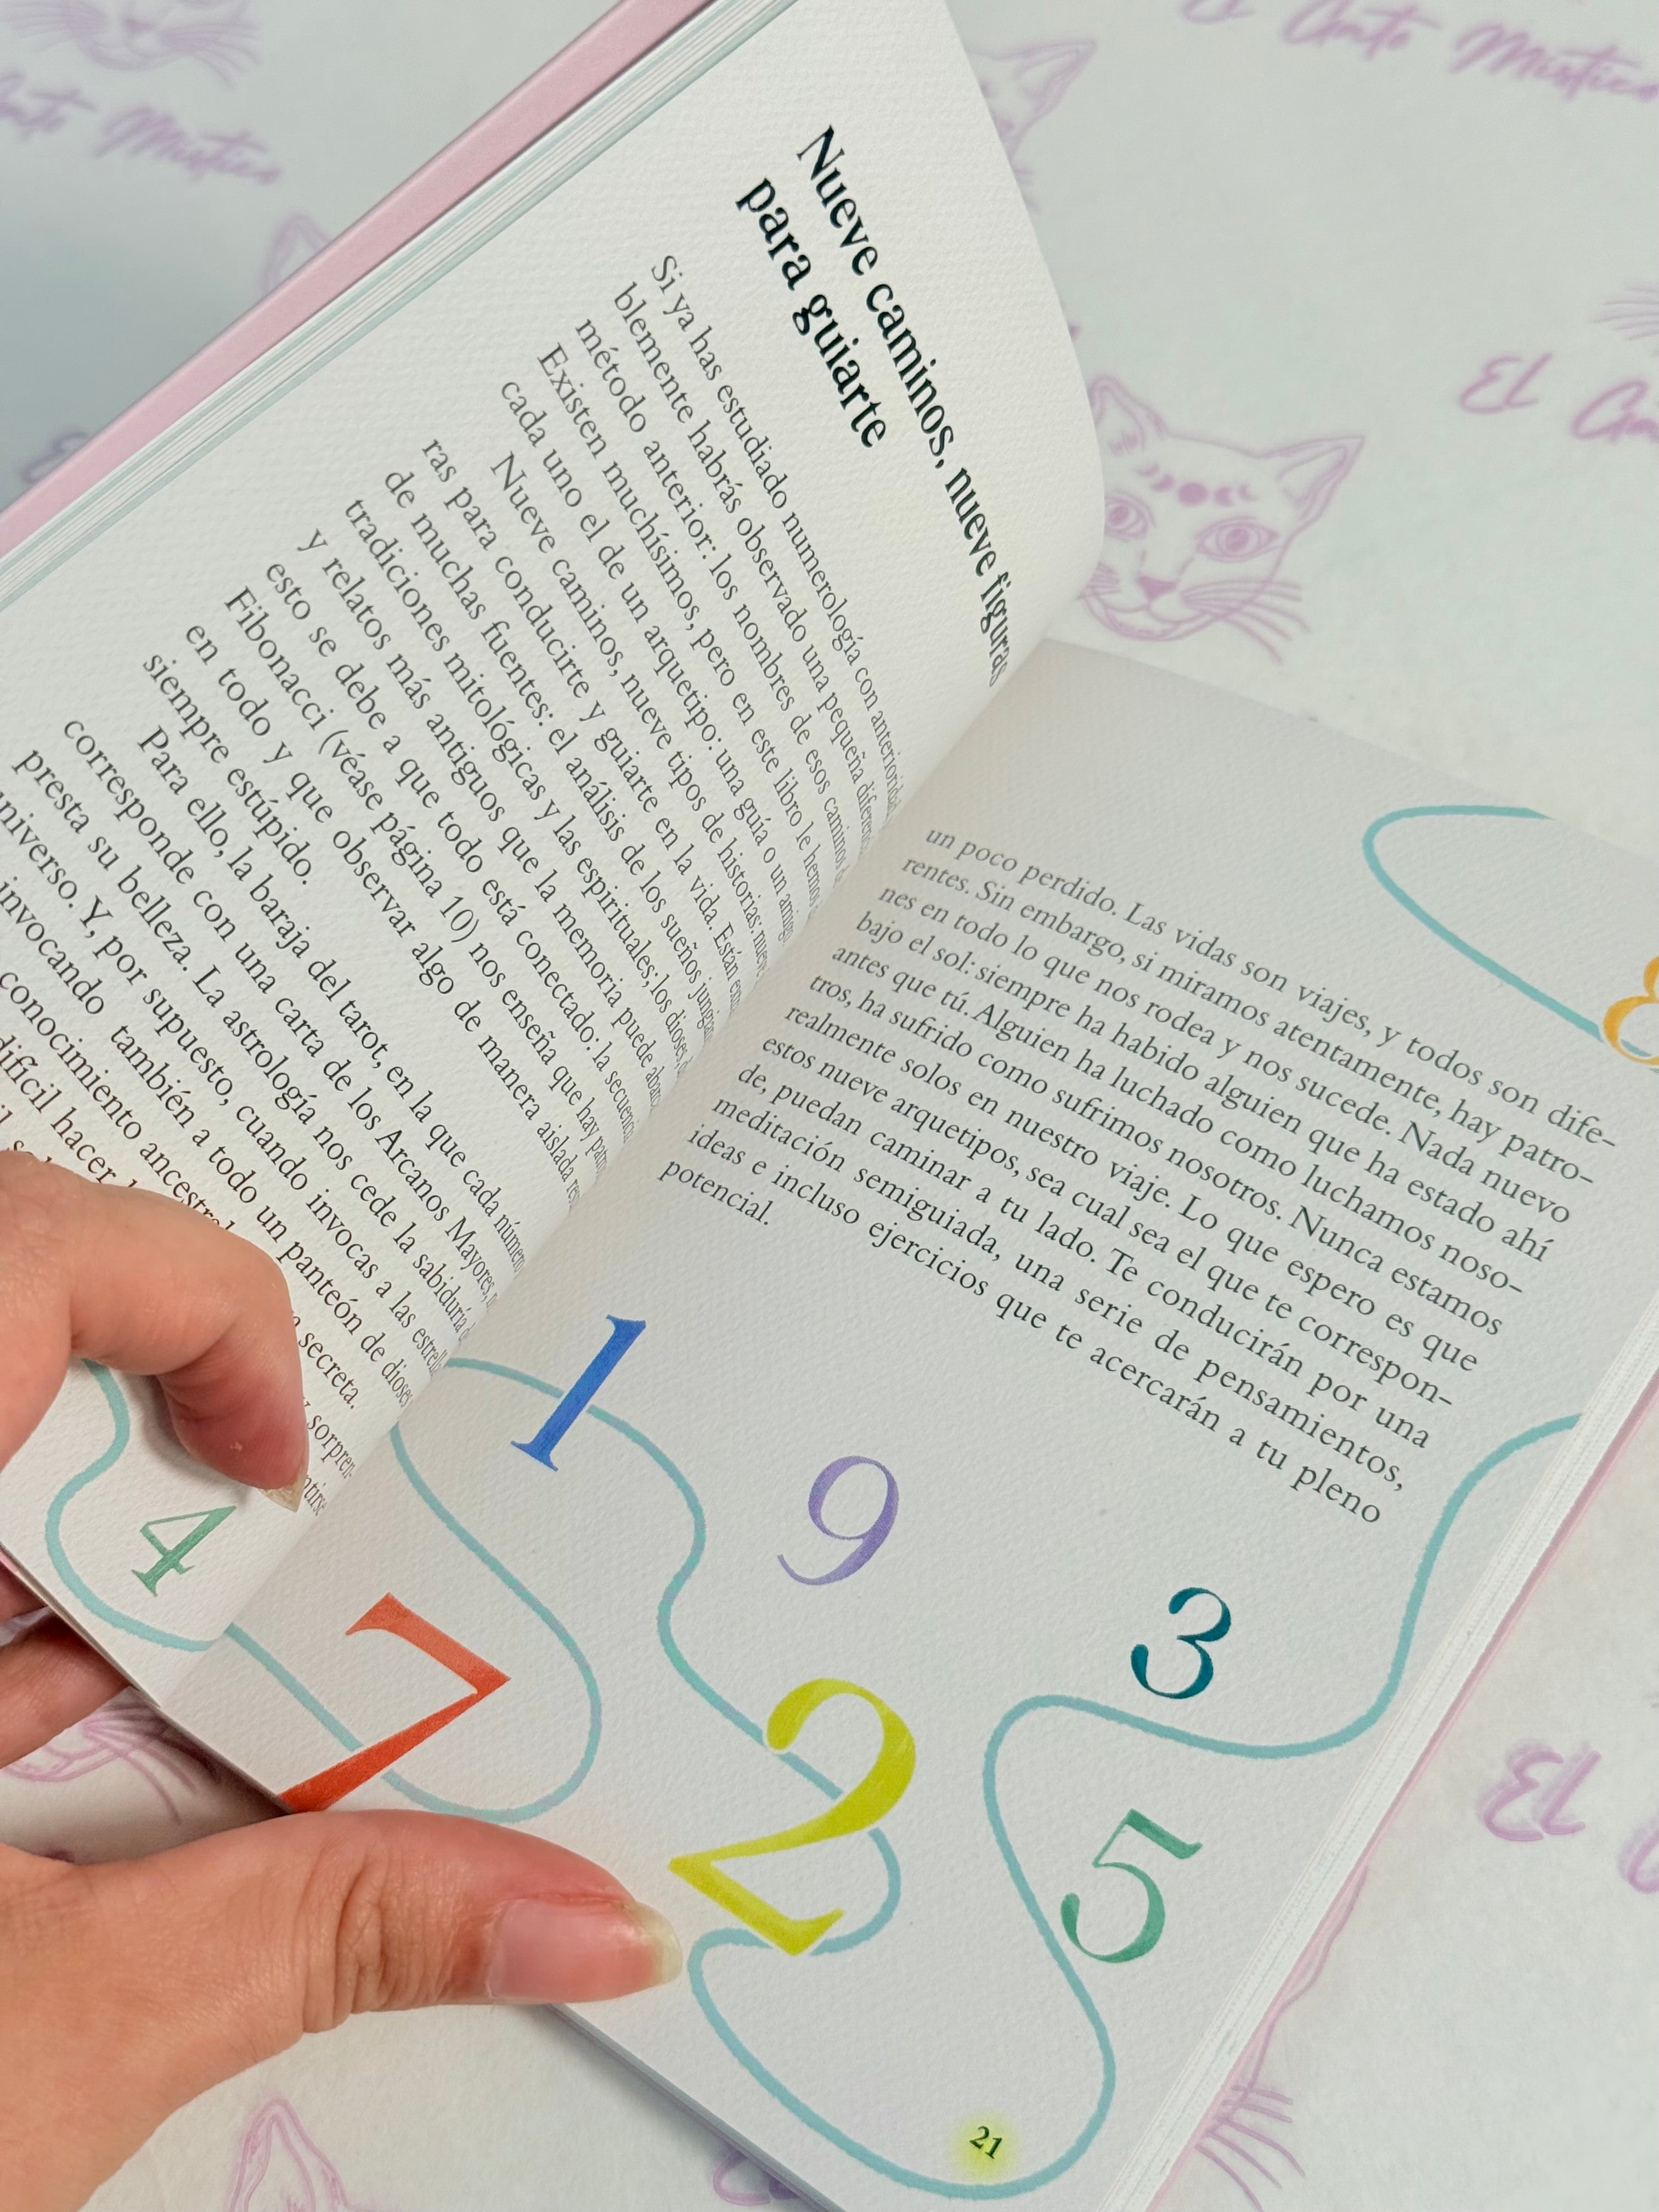 El Gato Místico
Nueve caminos, nueve figuras
para guiarte
Si ya has estudiado numerología con anterioridad,
blemente habrás observado una pequeña
método anterior: los nombres de esos caminos
Existen muchísimos, pero en este libro le hemos
cada uno el de un arquetipo: una guía o un amigo
Nueve caminos, nueve tipos de historias; nueve
ras para conducirte y guiarte en la vida. Están
de muchas fuentes: el análisis de los sueños
tradiciones mitológicas y las espirituales; los dioses
y relatos más antiguos que la memoria puede
esto se debe a que todo está conectado: la
Fibonacci (véase página 10) nos enseña que hay
en todo y que observar algo de manera aislada
siempre estúpido.
Para ello, la baraja del tarot, en la que cada
corresponde con una carta de los Arcanos Mayores,
presta su belleza. La astrología nos cede la sabiduría
universo. Y, por supuesto, cuando invocas a las
invocando también a todo un panteón de dioses
conocimiento ancestral secreta.
difícil hacer
4
un poco perdido. Las vidas son viajes, y todos son dife-
rentes. Sin embargo, si miramos atentamente, hay patro-
nes en todo lo que nos rodea y nos sucede. Nada nuevo
bajo el sol: siempre ha habido alguien que ha estado ahí
antes que tú. Alguien ha luchado como luchamos noso-
tros, ha sufrido como sufrimos nosotros. Nunca estamos
realmente solos en nuestro viaje. Lo que espero es que
estos nueve arquetipos, sea cual sea el que te correspon-
de, puedan caminar a tu lado. Te conducirán por una
meditación semiguiada, una serie de pensamientos,
ideas e incluso ejercicios que te acercarán a tu pleno
potencial.
8
1
9
3
7
2
5
21